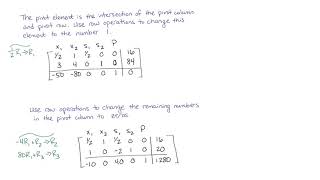 The pivot element is the intersection of the pivot column
and pivot row. Use row operations to change this
element to the number 1.
x₁ x₂ s₁ s₂ P
½R₁→R₁
½ 1 ½ 0 0 16
3 4 0 1 0 84
-50 -80 0 0 1 0
Use row operations to change the remaining numbers
in the pivot column to zeros
x₁ x₂ s₁ s₂ P
-4R₁+R₂→R₂
½ 1 ½ 0 0 16
80R₁+R₃→R₃
1 0 -2 1 0 20
-10 0 40 0 1 1280